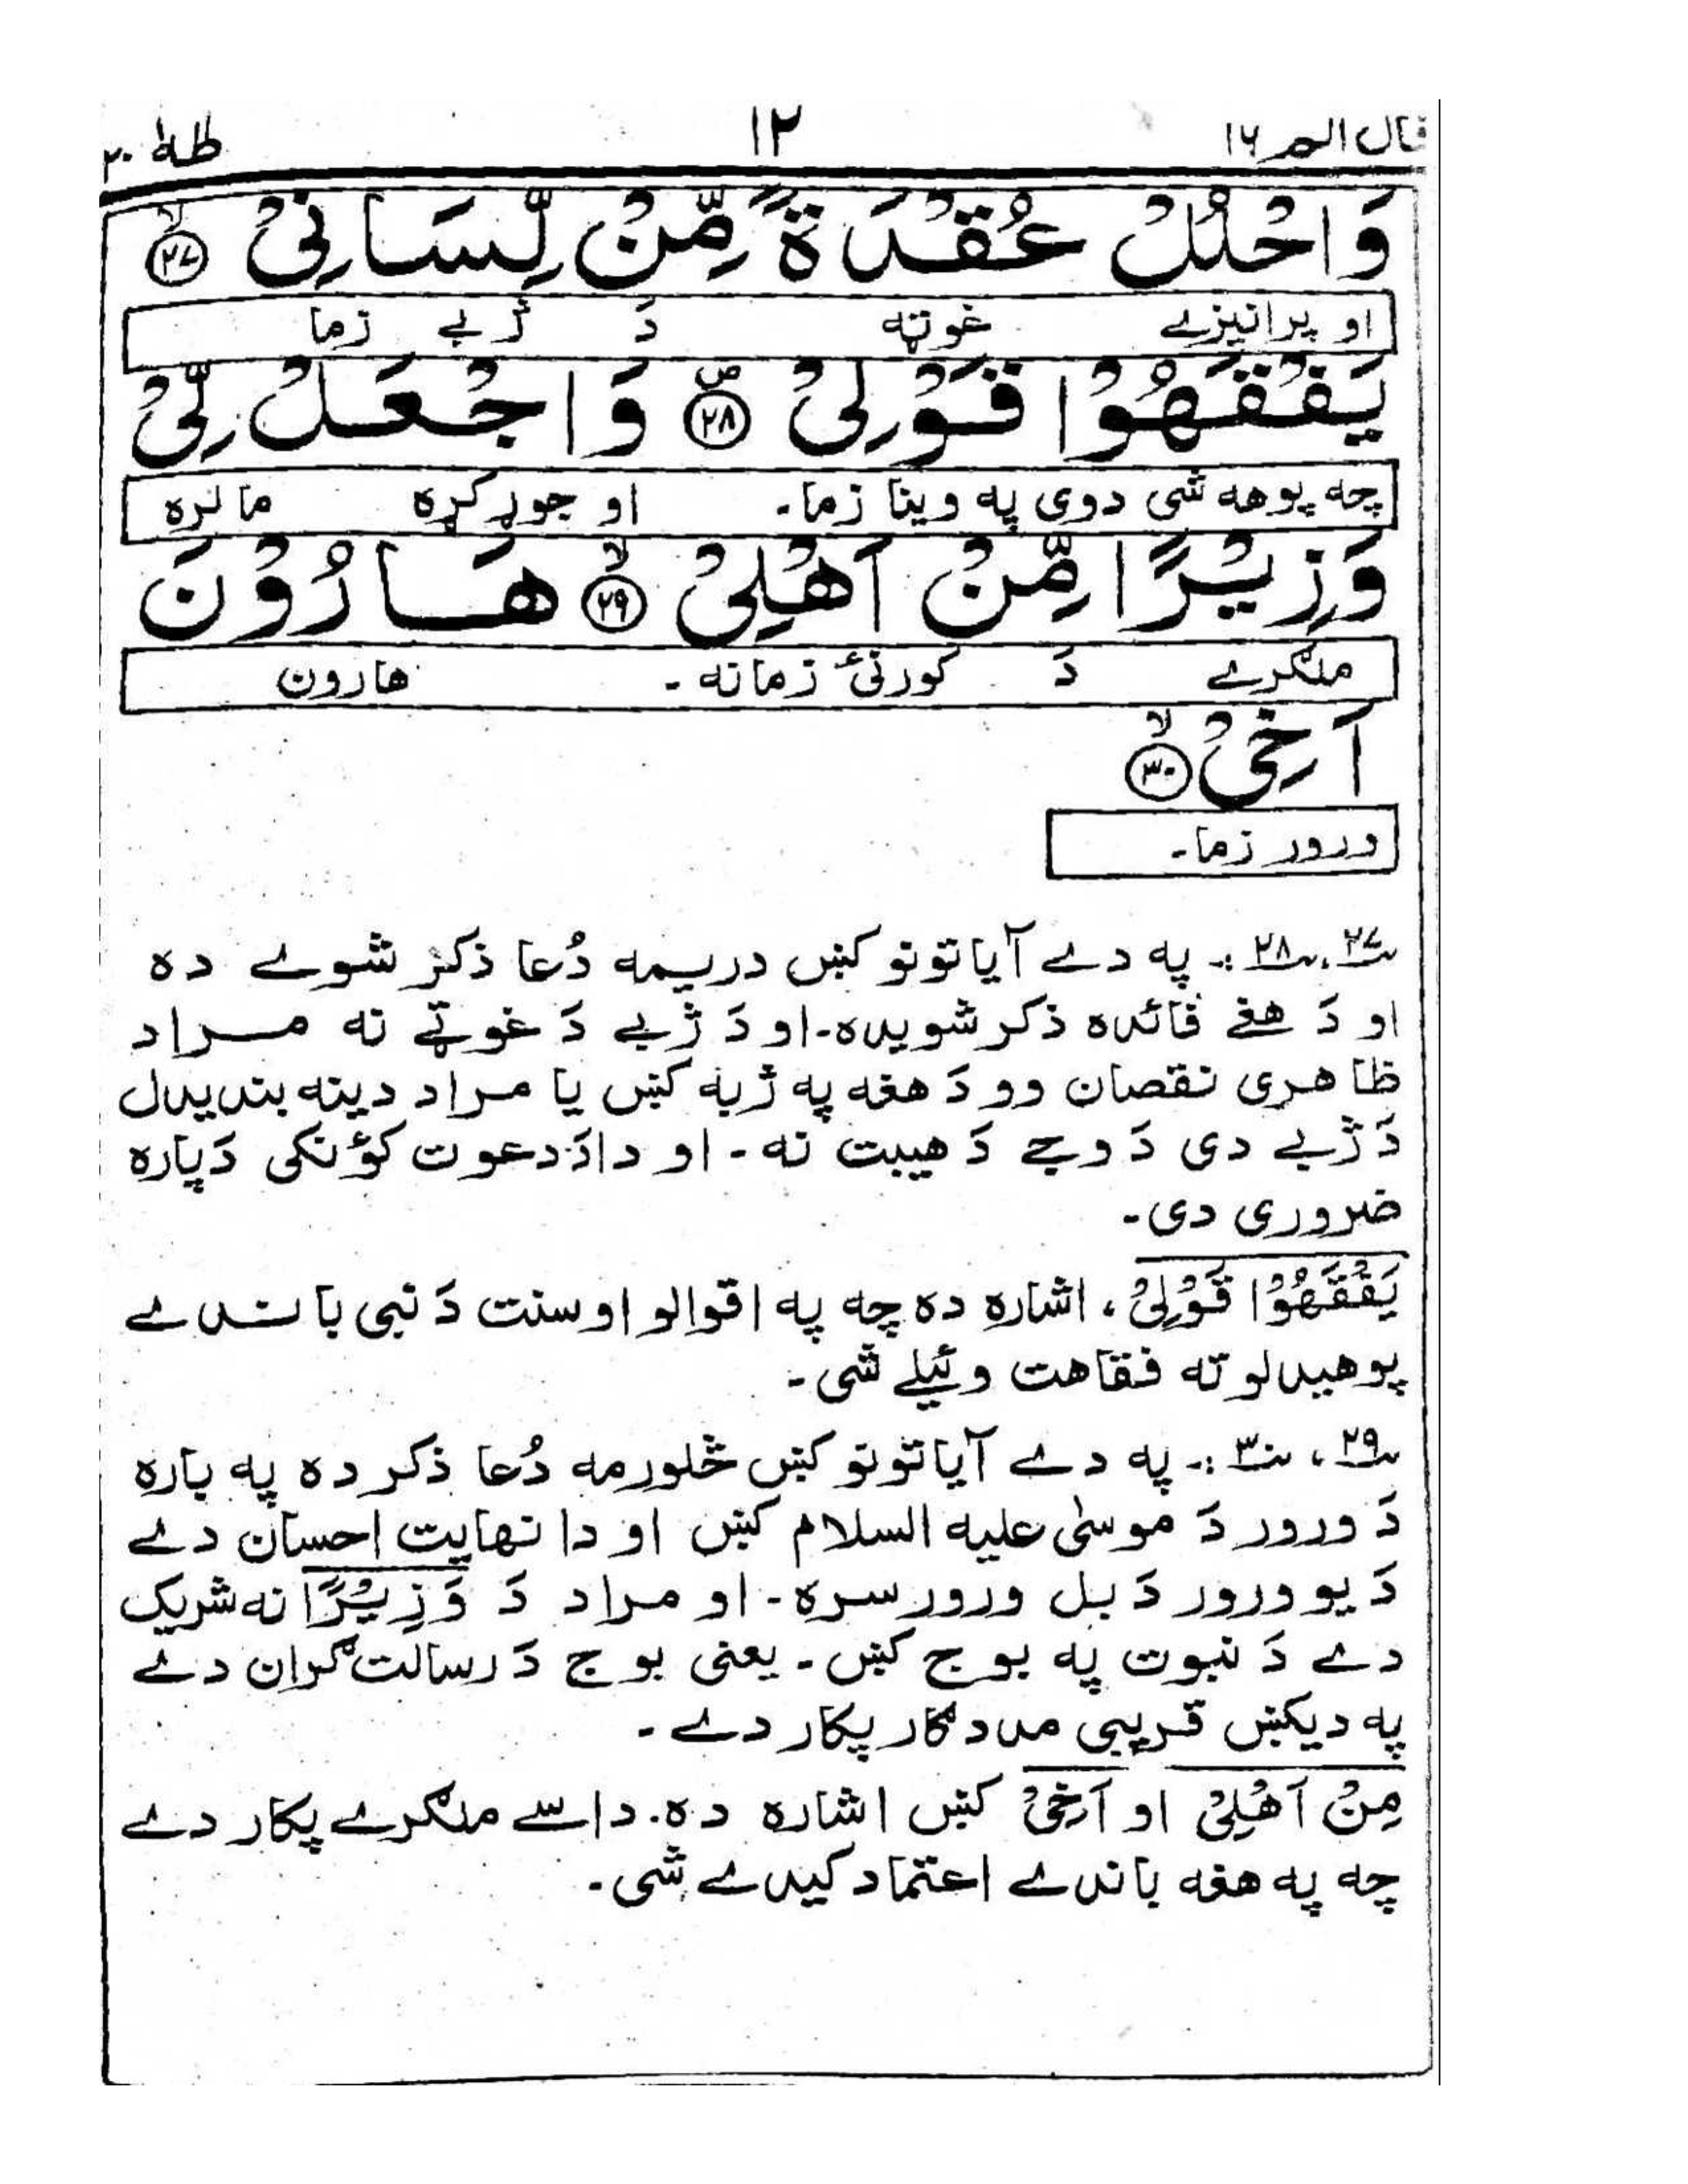 قال الم ١٦ ١٢ طٰهٰ ٢٠
وَاحْلُلْ عُقْدَةً مِّنْ لِّسَانِیْ ۙ ﴿۲۷﴾
او پرانیزے غوټه دَ ژبے زما
یَفْقَهُوْا قَوْلِیْ ۪ ﴿۲۸﴾ وَاجْعَلْ لِّیْ
چه پوهه شی دوی په وینا زما۔ او جوړ کړه ما لره
وَزِیْرًا مِّنْ اَهْلِیْ ۙ ﴿۲۹﴾ هَارُوْنَ
ملګرے دَ کورنئ زمانه ۔ هارون
اَخِی ۙ ﴿۳۰﴾
ورور زما۔
۲۷، ۲۸ :۔ په دے آیاتونو کښ دریمه دُعا ذکر شوے ده
او دَ هغے فائده ذکر شویده۔ او دَ ژبے دَ غوټے نه مراد
ظاهری نقصان وو دَ هغه په ژبه کښ یا مراد دینه بندیدل
دَ ژبے دی دَ وجے دَ هیبت نه ۔ او دا دَ دعوت کؤنکی دَپاره
ضروری دی۔
یَفْقَهُوْا قَوْلِیْ ، اشاره ده چه په اقوالو او سنت دَ نبی باندے
پوهیدلو ته فقاهت وئیلے شی ۔
۲۹، ۳۰ :۔ په دے آیاتونو کښ څلورمه دُعا ذکر ده په باره
دَ ورور دَ موسیٰ علیه السلام کښ او دا نهایت احسان دے
دَ یو ورور دَ بل ورور سره ۔ او مراد دَ وَزِیْرًا نه شریک
دے دَ نبوت په بوج کښ ۔ یعنی بوج دَ رسالت ګران دے
په دیکښ قریبی مددګار پکار دے ۔
مِنْ اَهْلِیْ او اَخِیْ کښ اشاره ده. داسے ملګرے پکار دے
چه په هغه باندے اعتماد کیدے شی.